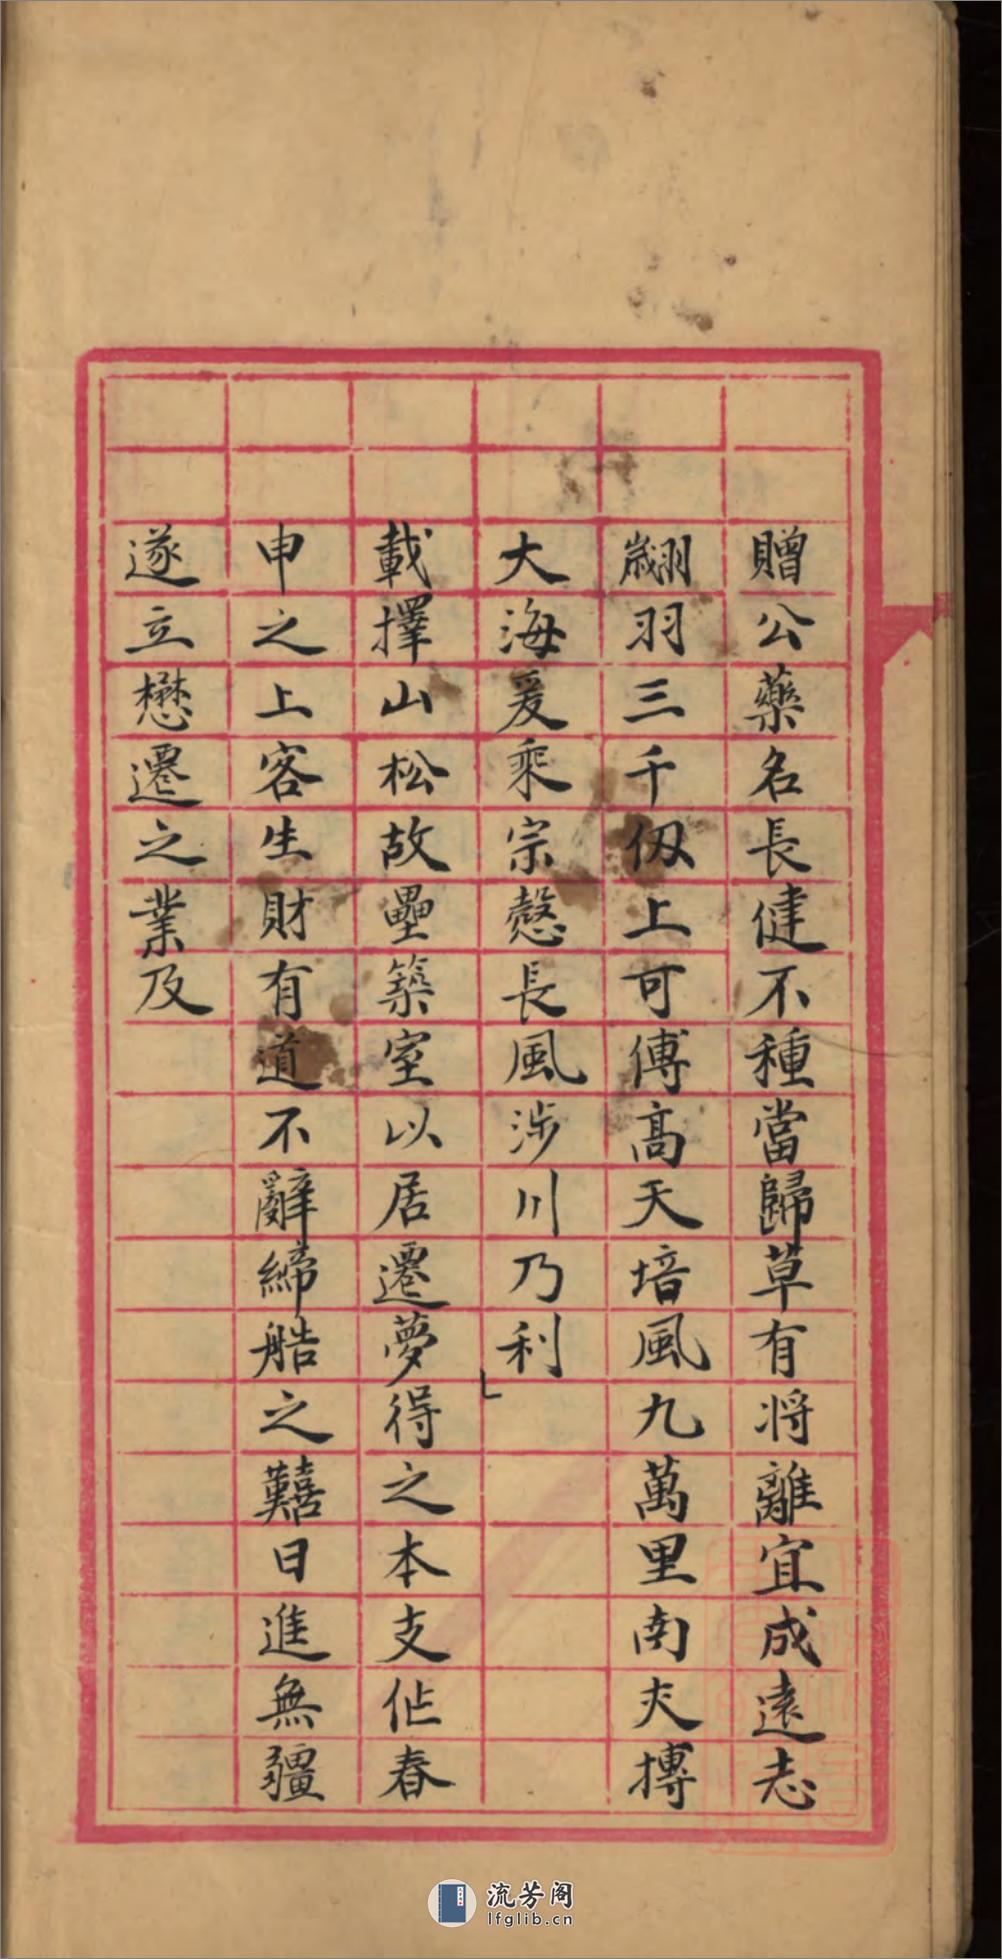 贈公藥名長健不種當歸草有将離宜成遠志
翽羽三千仭上可傅高天培風九萬里南夾摶
大海爰乘宗慤長風涉川乃利
載擇山松故壘築室以居遷夢得之本支作春
申之上客生財有道不辭締艁之囏日進無疆
遂立懋遷之業及
流芳阁
lfglib.cn